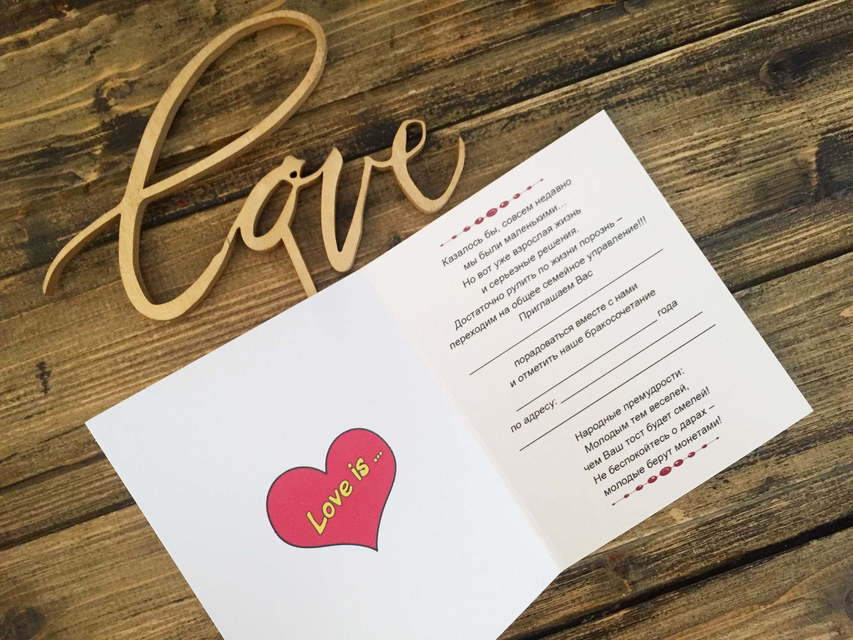 love
Казалось бы, совсем недавно
мы были маленькими...
Но вот уже взрослая жизнь
и серьезные решения.
Достаточно рулить по жизни порознь –
переходим на общее семейное управление!!!
Приглашаем Вас
порадоваться вместе с нами
и отметить наше бракосочетание
года
по адресу:
Народные премудрости:
Молодым тем веселей,
чем Ваш тост будет смелей!
Не беспокойтесь о дарах –
молодые берут монетами!
Love is ...